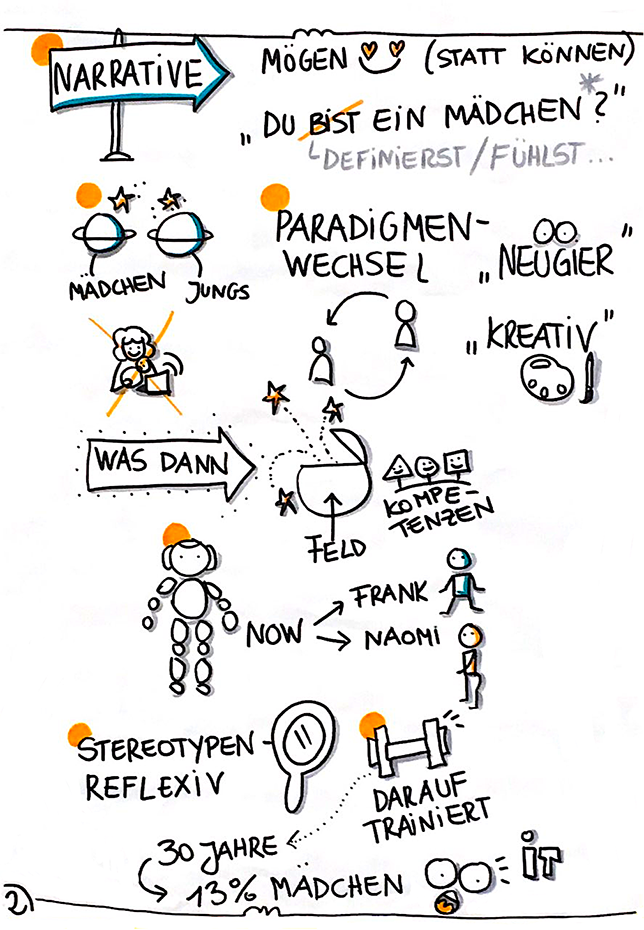 NARRATIVE
MÖGEN (STATT KÖNNEN)
„DU BIST EIN MÄDCHEN*?"
DEFINIERST/FÜHLST...
MÄDCHEN
JUNGS
PARADIGMEN-
WECHSEL
„NEUGIER"
„KREATIV"
WAS DANN
FELD
KOMPE-
TENZEN
NOW
FRANK
NAOMI
STEREOTYPEN
REFLEXIV
DARAUF
TRAINIERT
30 JAHRE
13% MÄDCHEN
IT
2)